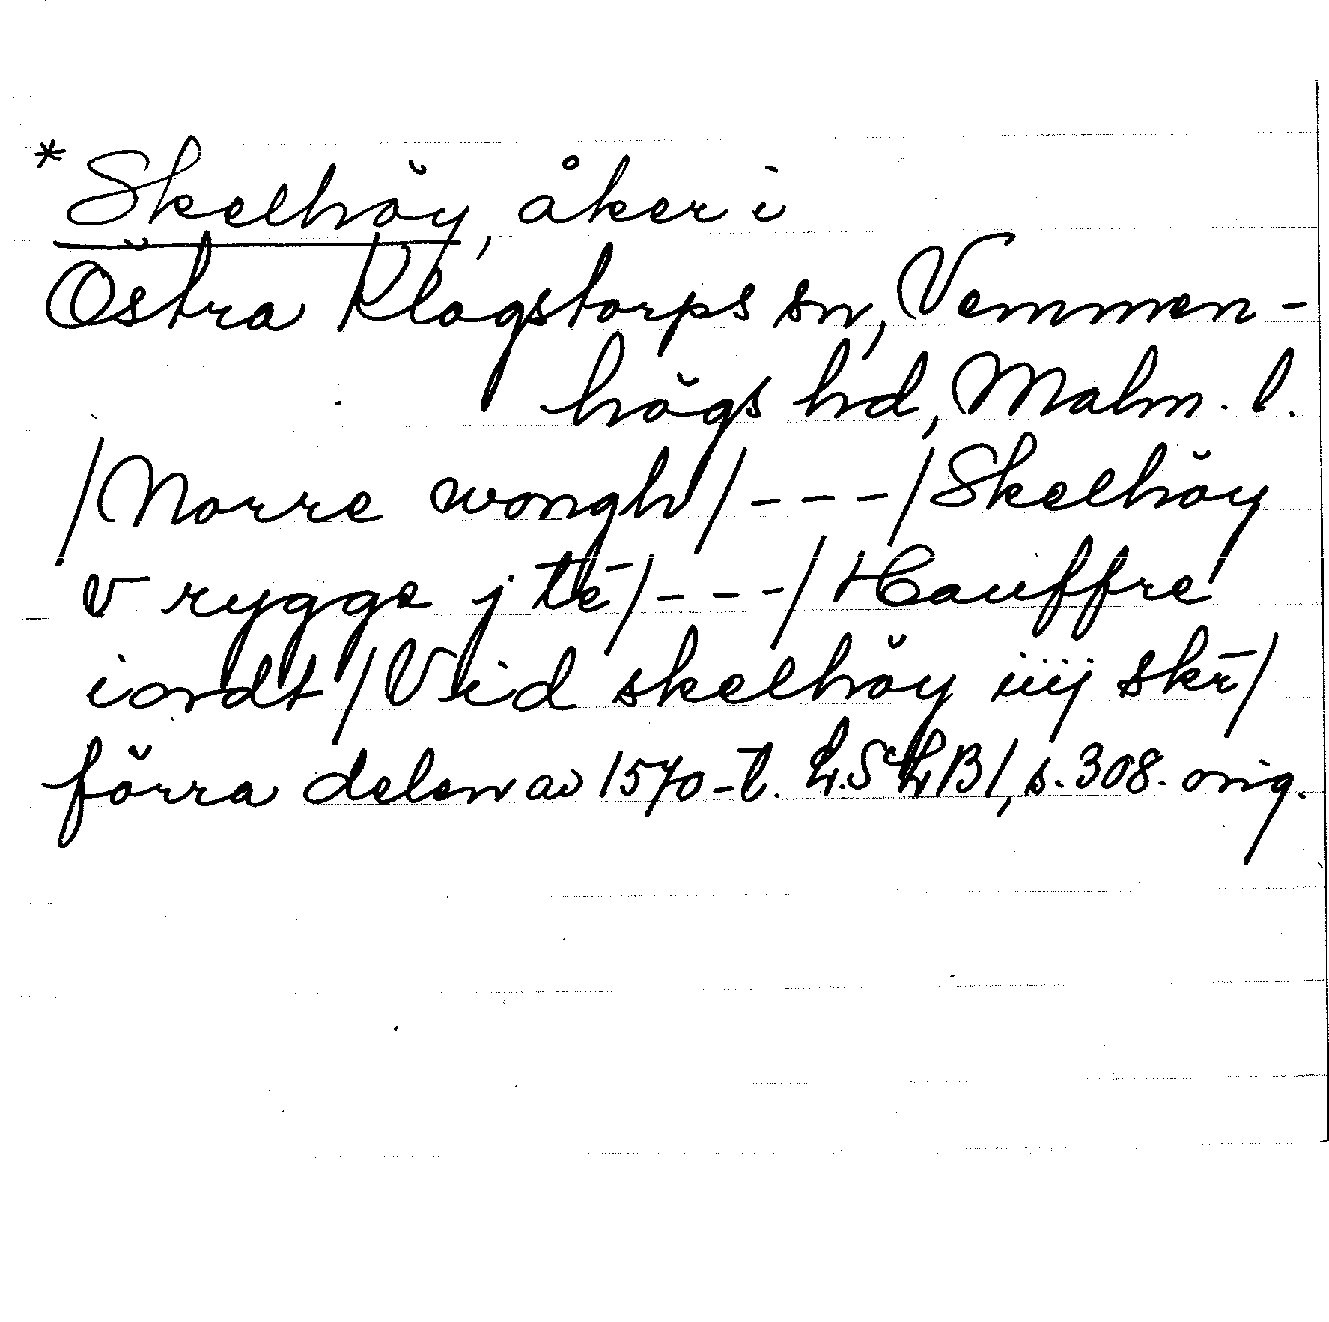 *Skelhöy, åker i
Östra Klagstorps sn, Vemmen-
högs hd, Malm. l.
/Norre wongh/---/Skelhöy
v rygge j tē/---/Hauffre
iordt/Vid skelhöy iiij skē/
förra delen av 1570-t. LSLB1, s. 308. orig.